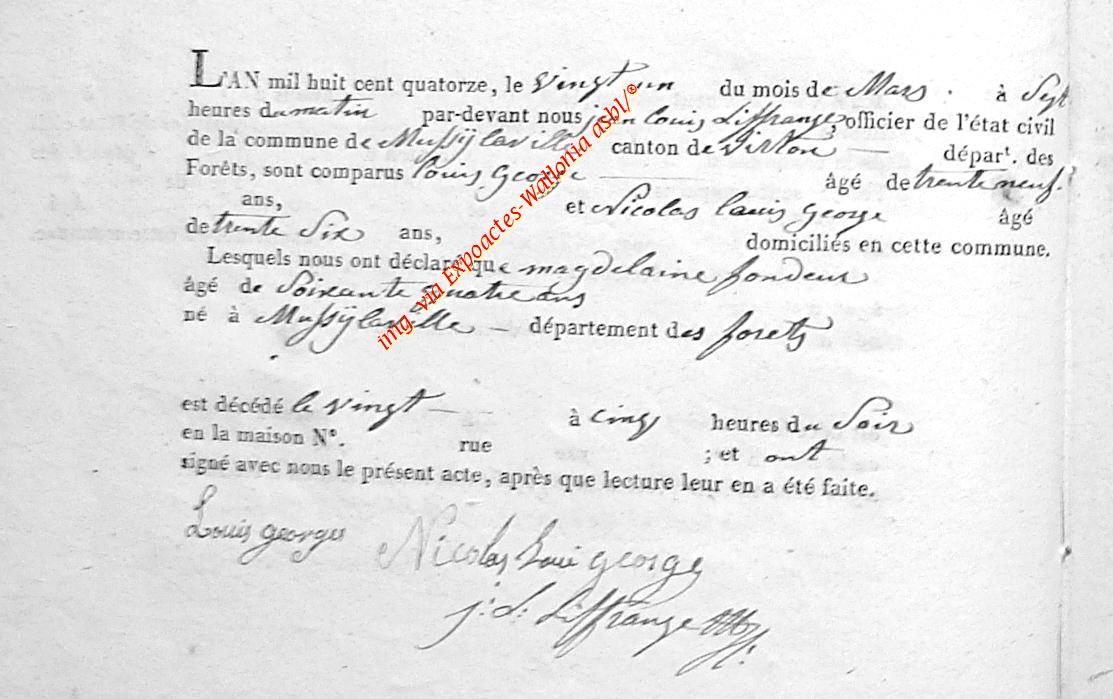 L'AN mil huit cent quatorze, le vingt un du mois de Mars. à Sept
heures du matin par-devant nous jean louis Liffrange, officier de l'état civil
de la commune de Mussÿlaville canton de Virton — départ. des
Forêts, sont comparus louis George — âgé de trente neuf
ans, et Nicolas louis george âgé
de trente Six ans, domiciliés en cette commune.
Lesquels nous ont déclaré que magdelaine fondeur
âgé de Soixante quatre ans
né à Mussÿlaville — département des forets
est décédé le vingt — à cinq heures du Soir
en la maison N°. rue ; et ont
signé avec nous le présent acte, après que lecture leur en a été faite.
Louis georges Nicolas Loui george
j: L: Liffrange
img -via Expoactes-Wallonia asbl/©